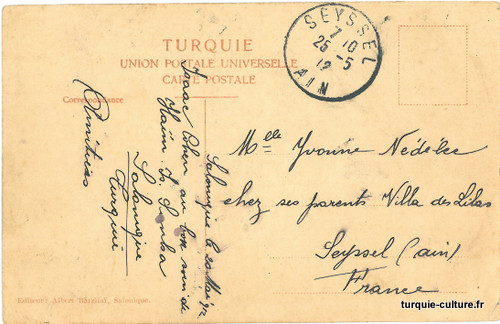 TURQUIE
UNION POSTALE UNIVERSELLE
CARTE POSTALE
Correspondance
SEYSSEL
7 10
25 -5
12
AIN
Salonique le 20 Mai 12
Isaac Cohen au bon soin de
Haïm S.
Salonique
Turquie
Amitiés
Melle Yvonne Nédélec
chez ses parents Villa des Lilas
Seyssel (ain)
France
Editeur: Albert Barzilai, Salonique.
turquie-culture.fr